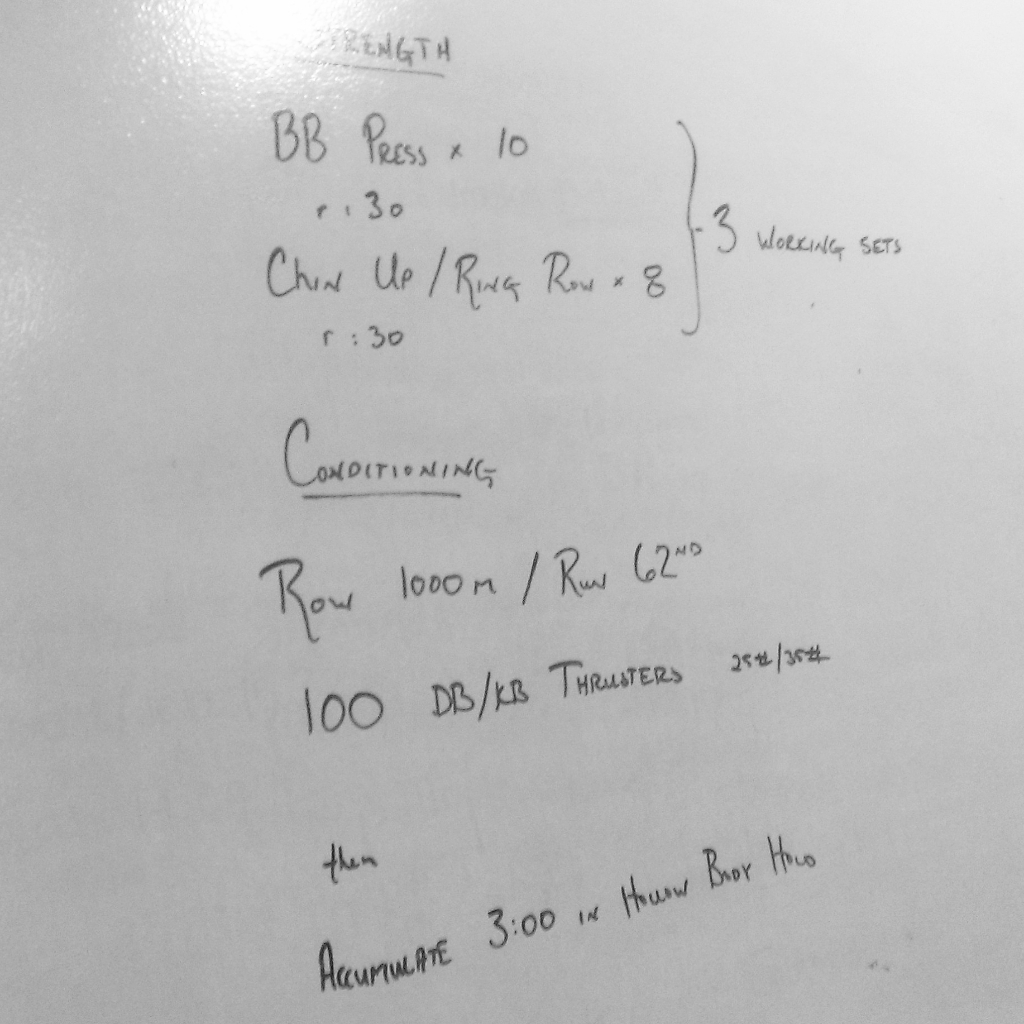 STRENGTH
BB PRESS x 10
r :30
CHIN UP / RING ROW x 8
r :30
3 WORKING SETS
CONDITIONING
ROW 1000m / RUN 62ND
100 DB/KB THRUSTERS 25#/35#
then
ACCUMULATE 3:00 IN HOLLOW BODY HOLD